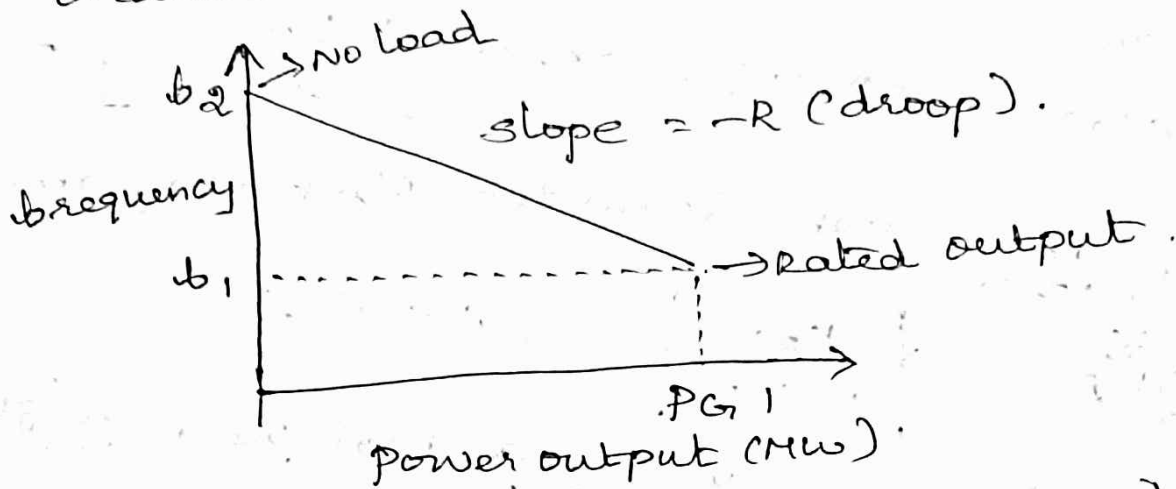 → No Load
f2
slope = -R (droop).
frequency
f1
→ Rated output.
PG1
Power output (MW).